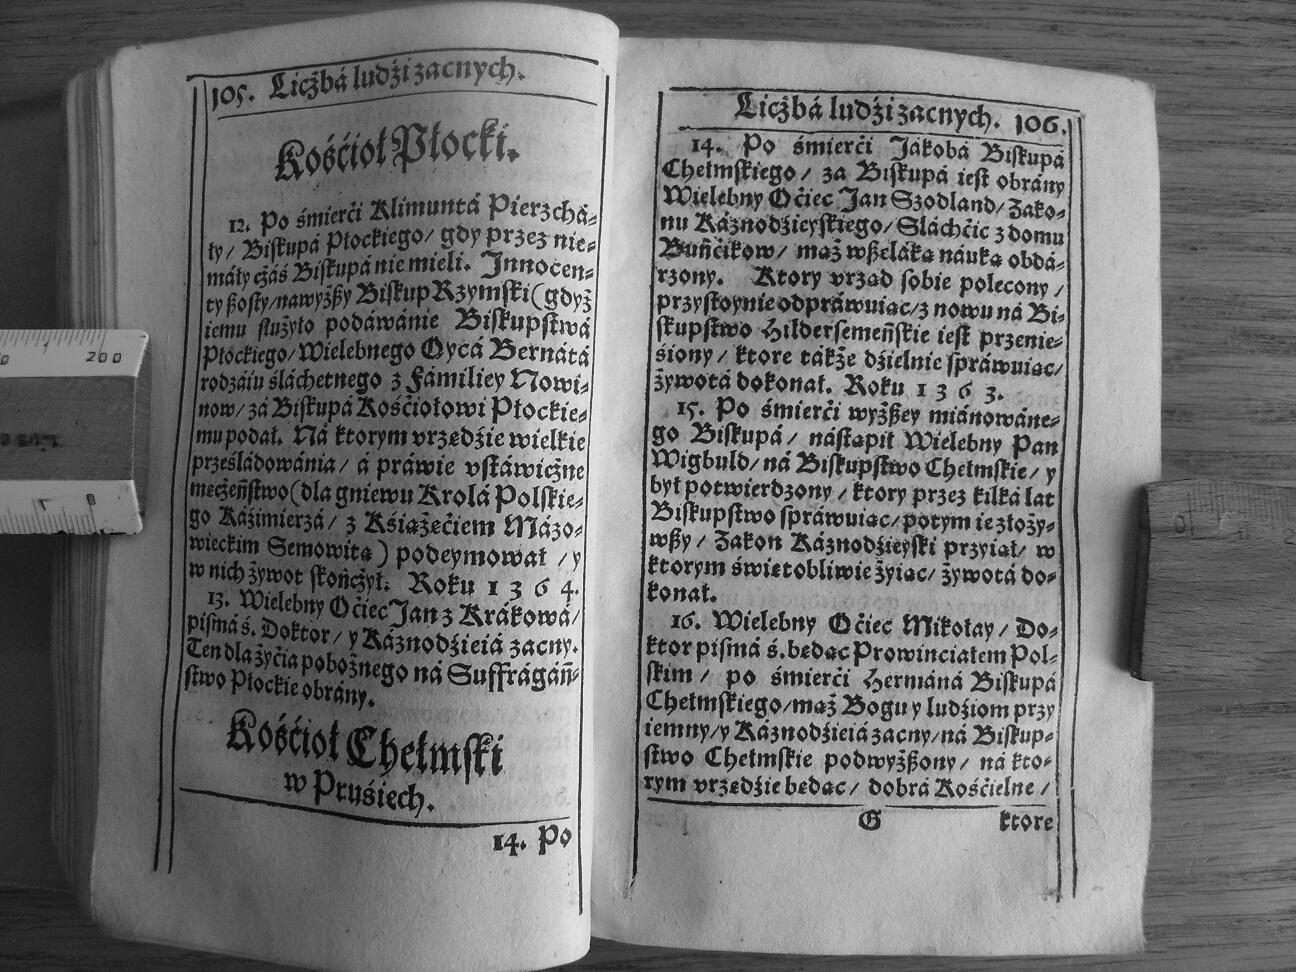 105. Liczbá ludźi zacnych.
Kośćioł Płocki.
12. Po śmierći Klimuntá Pierzchá-
ły/ Biskupá Płockiego/ gdy przez nie-
máły cżás Biskupá nie mieli. Innocen-
ty ßosty/ nawyżßy Biskup Rzymski (gdyż
iemu służyło podáwánie Biskupstwá
Płockiego/ Wielebnego Oycá Bernátá
rodzáiu śláchetnego z Fámiliey Nowi-
now/ zá Biskupá Kośćiołowi Płockie-
mu podał. Ná ktorym vrzędźie wielkie
prześládowánia/ á práwie vstáwicżne
męcżeństwo (dla gniewu Krolá Polskie-
go Káźimierzá/ z Kśiążęćiem Mázo-
wieckim Semowitą) podeymował/ y
w nich żywot skończył. Roku 1 3 6 4.
13. Wielebny Oćiec Jan z Krákowá/
pismá ś. Doktor/ y Káznodźieiá zacny.
Ten dla żyćia pobożnego ná Suffrágáń-
stwo Płockie obrány.
Kośćioł Chełmski
w Pruśiech.
14. Po
Licżbá ludźi zacnych. 106.
14. Po śmierći Jákobá Biskupá
Chełmskiego/ zá Biskupá iest obrány
Wielebny Oćiec Jan Szodland/ Zako-
nu Káznodźieyskiego/ Śláchćic z domu
Buńćikow/ mąż wßeláką náuką obdá-
rzony. Ktory vrząd sobie polecony/
przystoynie odpráwuiąc/ z nowu ná Bi-
skupstwo Hildersemeńskie iest przenie-
śiony/ ktore tákże dźielnie spráwuiąc/
żywotá dokonał. Roku 1 3 6 3.
15. Po śmierći wyżßey miánowáne-
go Biskupá/ nástąpił Wielebny Pan
Wigbuld/ ná Biskupstwo Chełmskie/ y
był potwierdzony/ ktory przez kilká lat
Biskupstwo spráwuiąc/ potym ie złoży-
wßy/ Zakon Káznodźieyski przyiął/ w
ktorym świętobliwie żyiąc/ żywotá do-
konał.
16. Wielebny Oćiec Mikołay/ Do-
ktor pismá ś. będąc Prowinciałem Pol-
skim/ po śmierći Hermáná Biskupá
Chełmskiego/ mąż Bogu y ludźiom przy
iemny/ y Káznodźieiá zacny/ ná Biskup-
stwo Chełmskie podwyżßony/ ná kto-
rym vrzędźie będąc/ dobrá Kośćielne/
G ktore
200